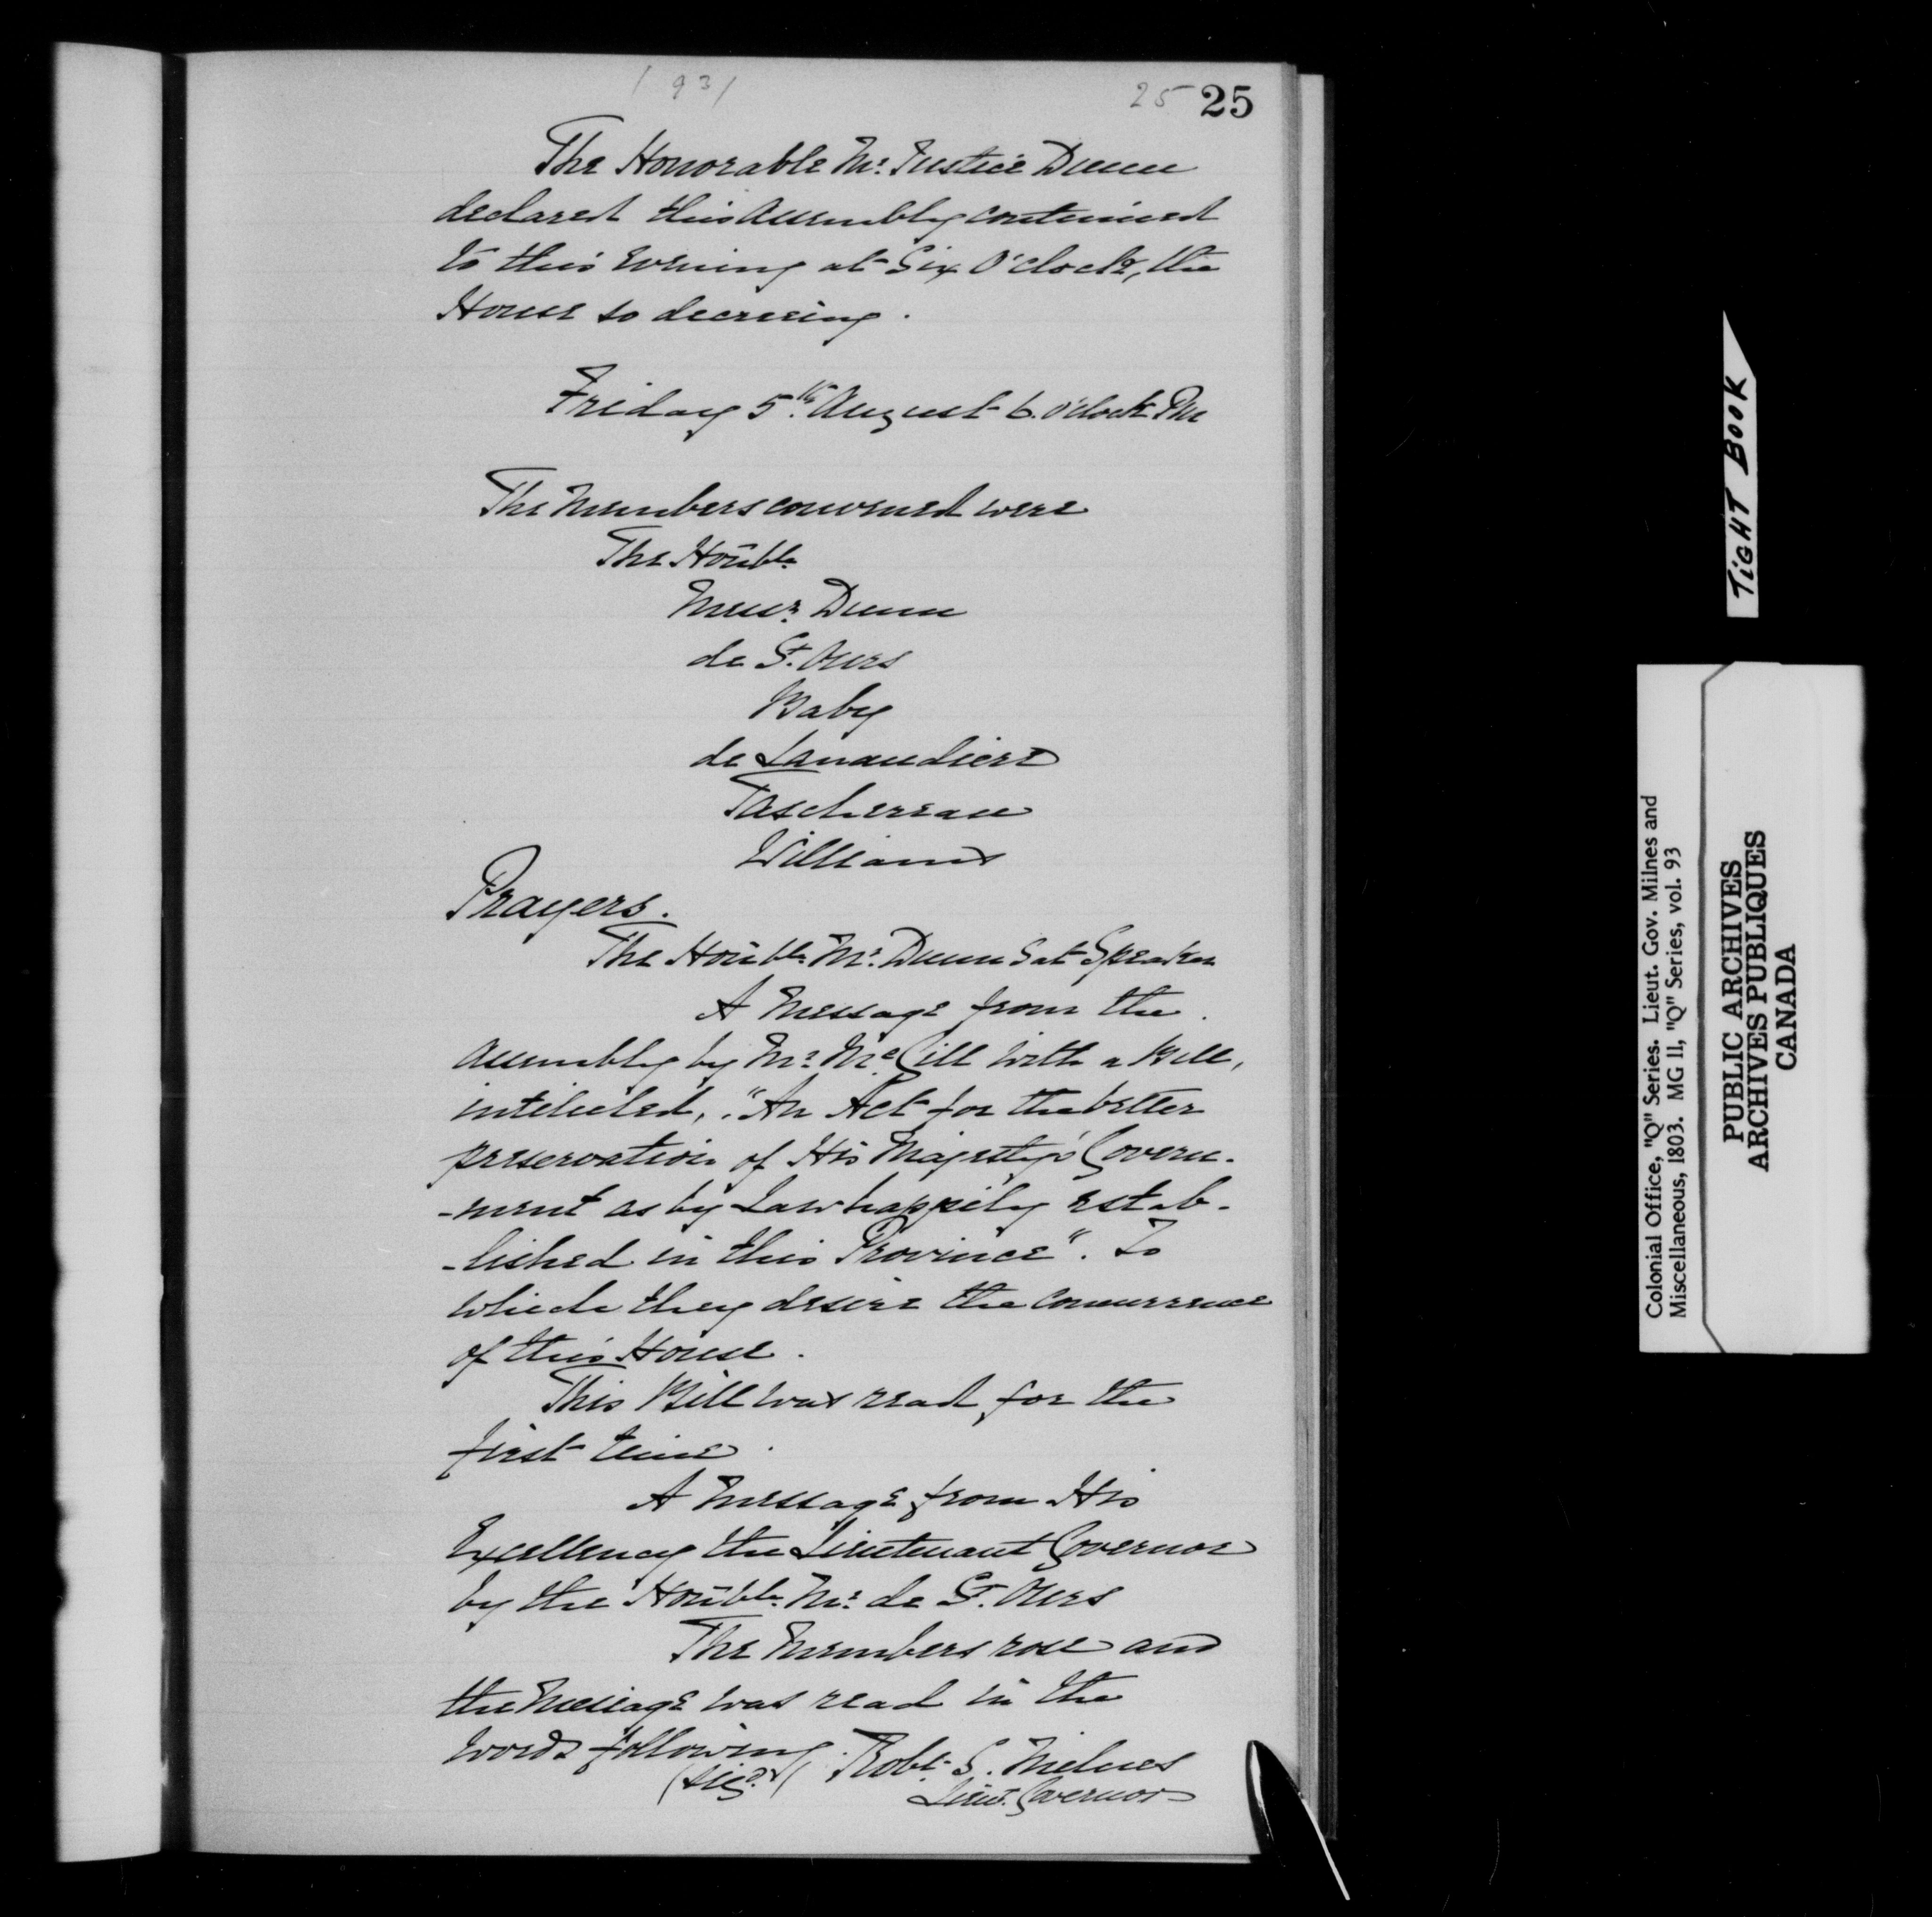 (93)
25 25
The Honorable Mr. Justice Dunn
declared this Assembly continued
to this Evening at Six O'clock, the
House so decreeing.
Friday 5th. August 6. o'clock PM
The Members convened were
The Honble.
Messrs. Dunn
de St. Ours
Baby
de Lanaudiere
Taschereau
Williams
Prayers.
The Honble. Mr. Dunn Sat Speaker
A Message from the
Assembly by Mr. McGill with a Bill,
intituled, "An Act for the better
preservation of His Majesty's Govern-
-ment as by Law happily estab-
-lished in this Province". To
which they desire the Concurrence
of this House.
This Bill was read for the
first time.
A Message from His
Excellency the Lieutenant Governor
by the Honble. Mr. de St. Ours
The Members rose and
the Message was read in the
words following.
(sigd.) Robt. S. Milnes
Lieut. Governor
TIGHT BOOK
Colonial Office, "Q" Series. Lieut. Gov. Milnes and
Miscellaneous, 1803. MG 11, "Q" Series, vol. 93
PUBLIC ARCHIVES
ARCHIVES PUBLIQUES
CANADA